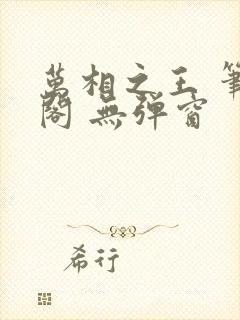 萬相之王 筆
閣 無彈窗
希行